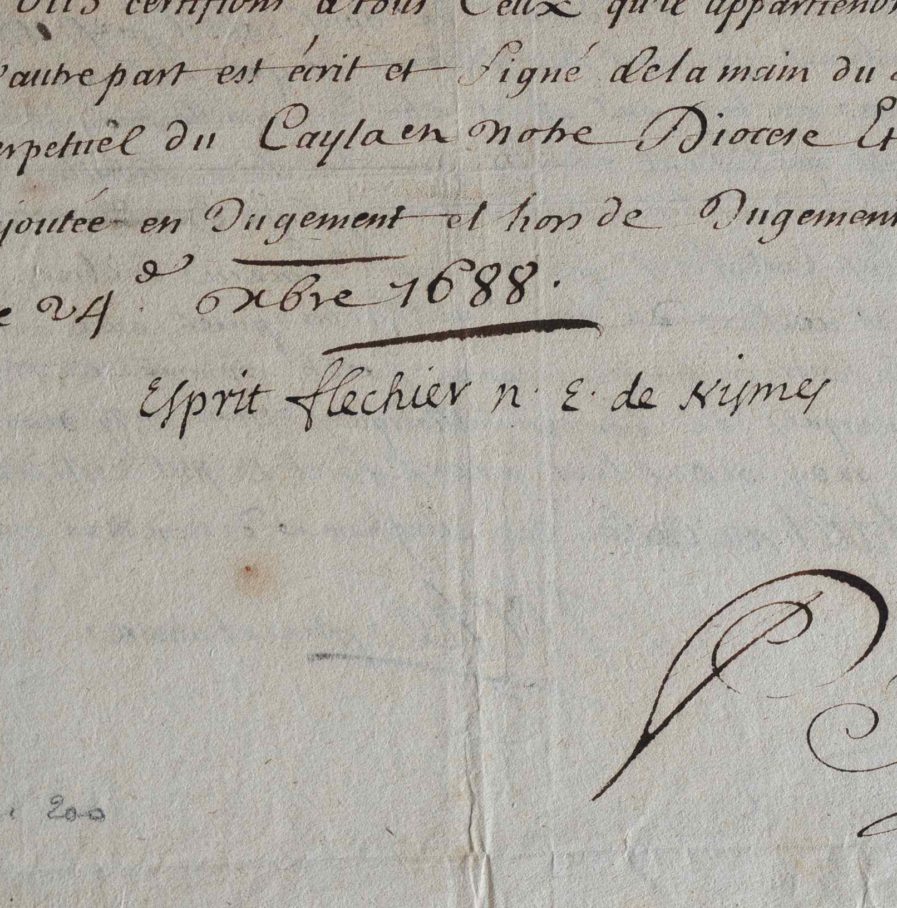 ous certifions a tous Ceux qu'il appartiendr
'autre part est écrit et signé de la main du
erpetuël du Caylaen notre Diocese Et
joutée en Jugement et hors de Jugemen
e 24 d. oxbre 1688.
Esprit flechier n. E. de Nismes
200